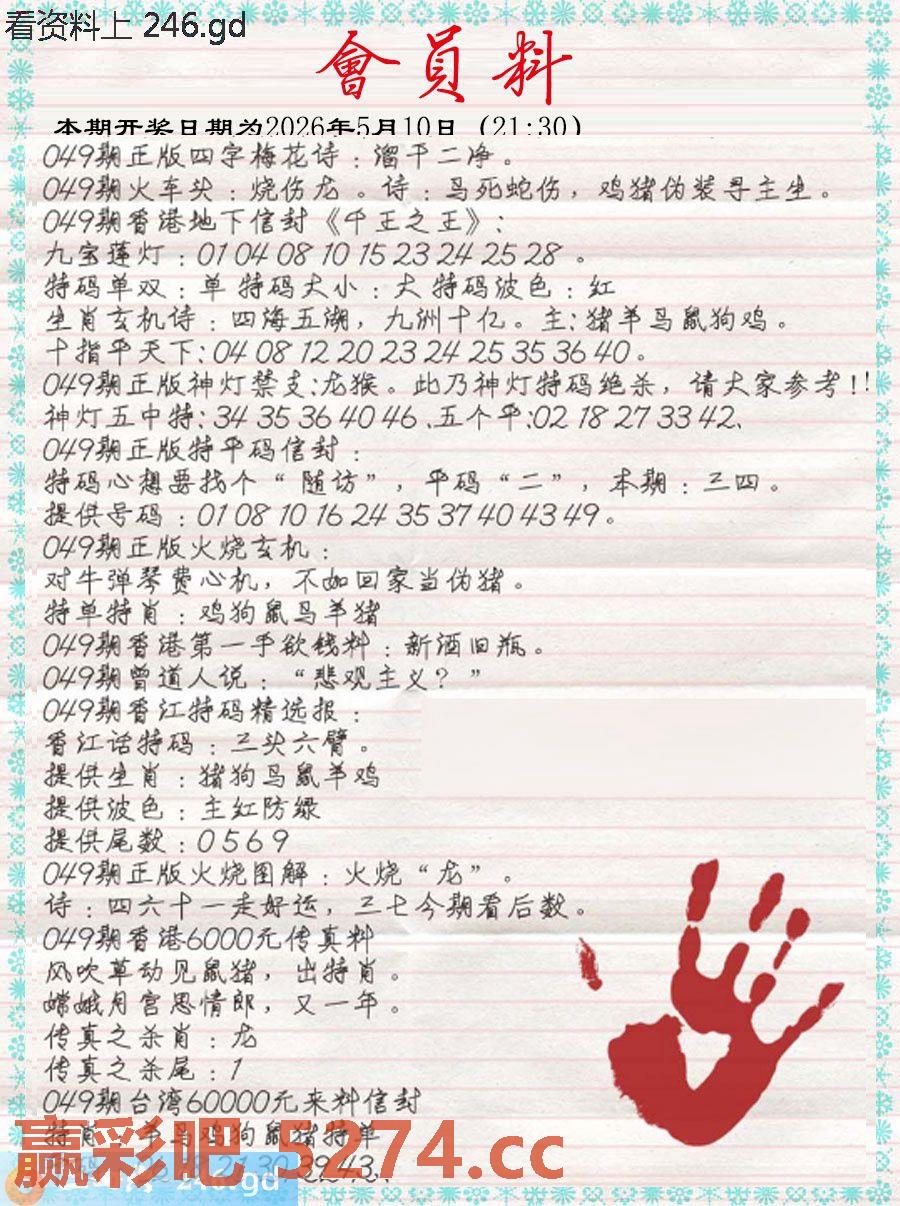 看资料上 246.gd
會員料
本期开奖日期为2026年5月10日 (21:30)
049期正版四字梅花诗:溜干二净。
049期火车头:烧伤龙。诗:马死蛇伤,鸡猪伪装寻主生。
049期香港地下信封《千王之王》:
九宝莲灯:01 04 08 10 15 23 24 25 28 。
特码单双:单 特码大小:大 特码波色:红
生肖玄机诗:四海五湖,九洲十亿。主:猪羊马鼠狗鸡。
十指平天下:04 08 12 20 23 24 25 35 36 40。
049期正版神灯禁支:龙猴。此乃神灯特码绝杀,请大家参考!!
神灯五中特:34 35 36 40 46 、五个平:02 18 27 33 42、
049期正版特平码信封:
特码心想要找个“随访”,平码“二”,本期:三四。
提供号码:01 08 10 16 24 35 37 40 43 49。
049期正版火烧玄机:
对牛弹琴费心机,不如回家当伪猪。
特单特肖:鸡狗鼠马羊猪
049期香港第一手欲钱料:新酒旧瓶。
049期曾道人说:“悲观主义?”
049期香江特码精选报:
香江话特码:三头六臂。
提供生肖:猪狗马鼠羊鸡
提供波色:主红防绿
提供尾数:0 5 6 9
049期正版火烧图解:火烧“龙”。
诗:四六十一走好运,三七今期看后数。
049期香港6000元传真料
风吹草动见鼠猪,出特肖。
嫦娥月宫思情郎,又一年。
传真之杀肖:龙
传真之杀尾:1
049期台湾60000元来料信封
特肖:羊马鸡狗鼠猪特单
赢彩吧.5274.cc
21 30 39 43
246.gd